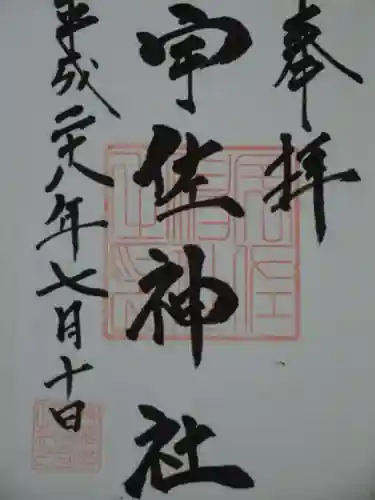 奉拝
宇佐神社
平成二十八年七月十日